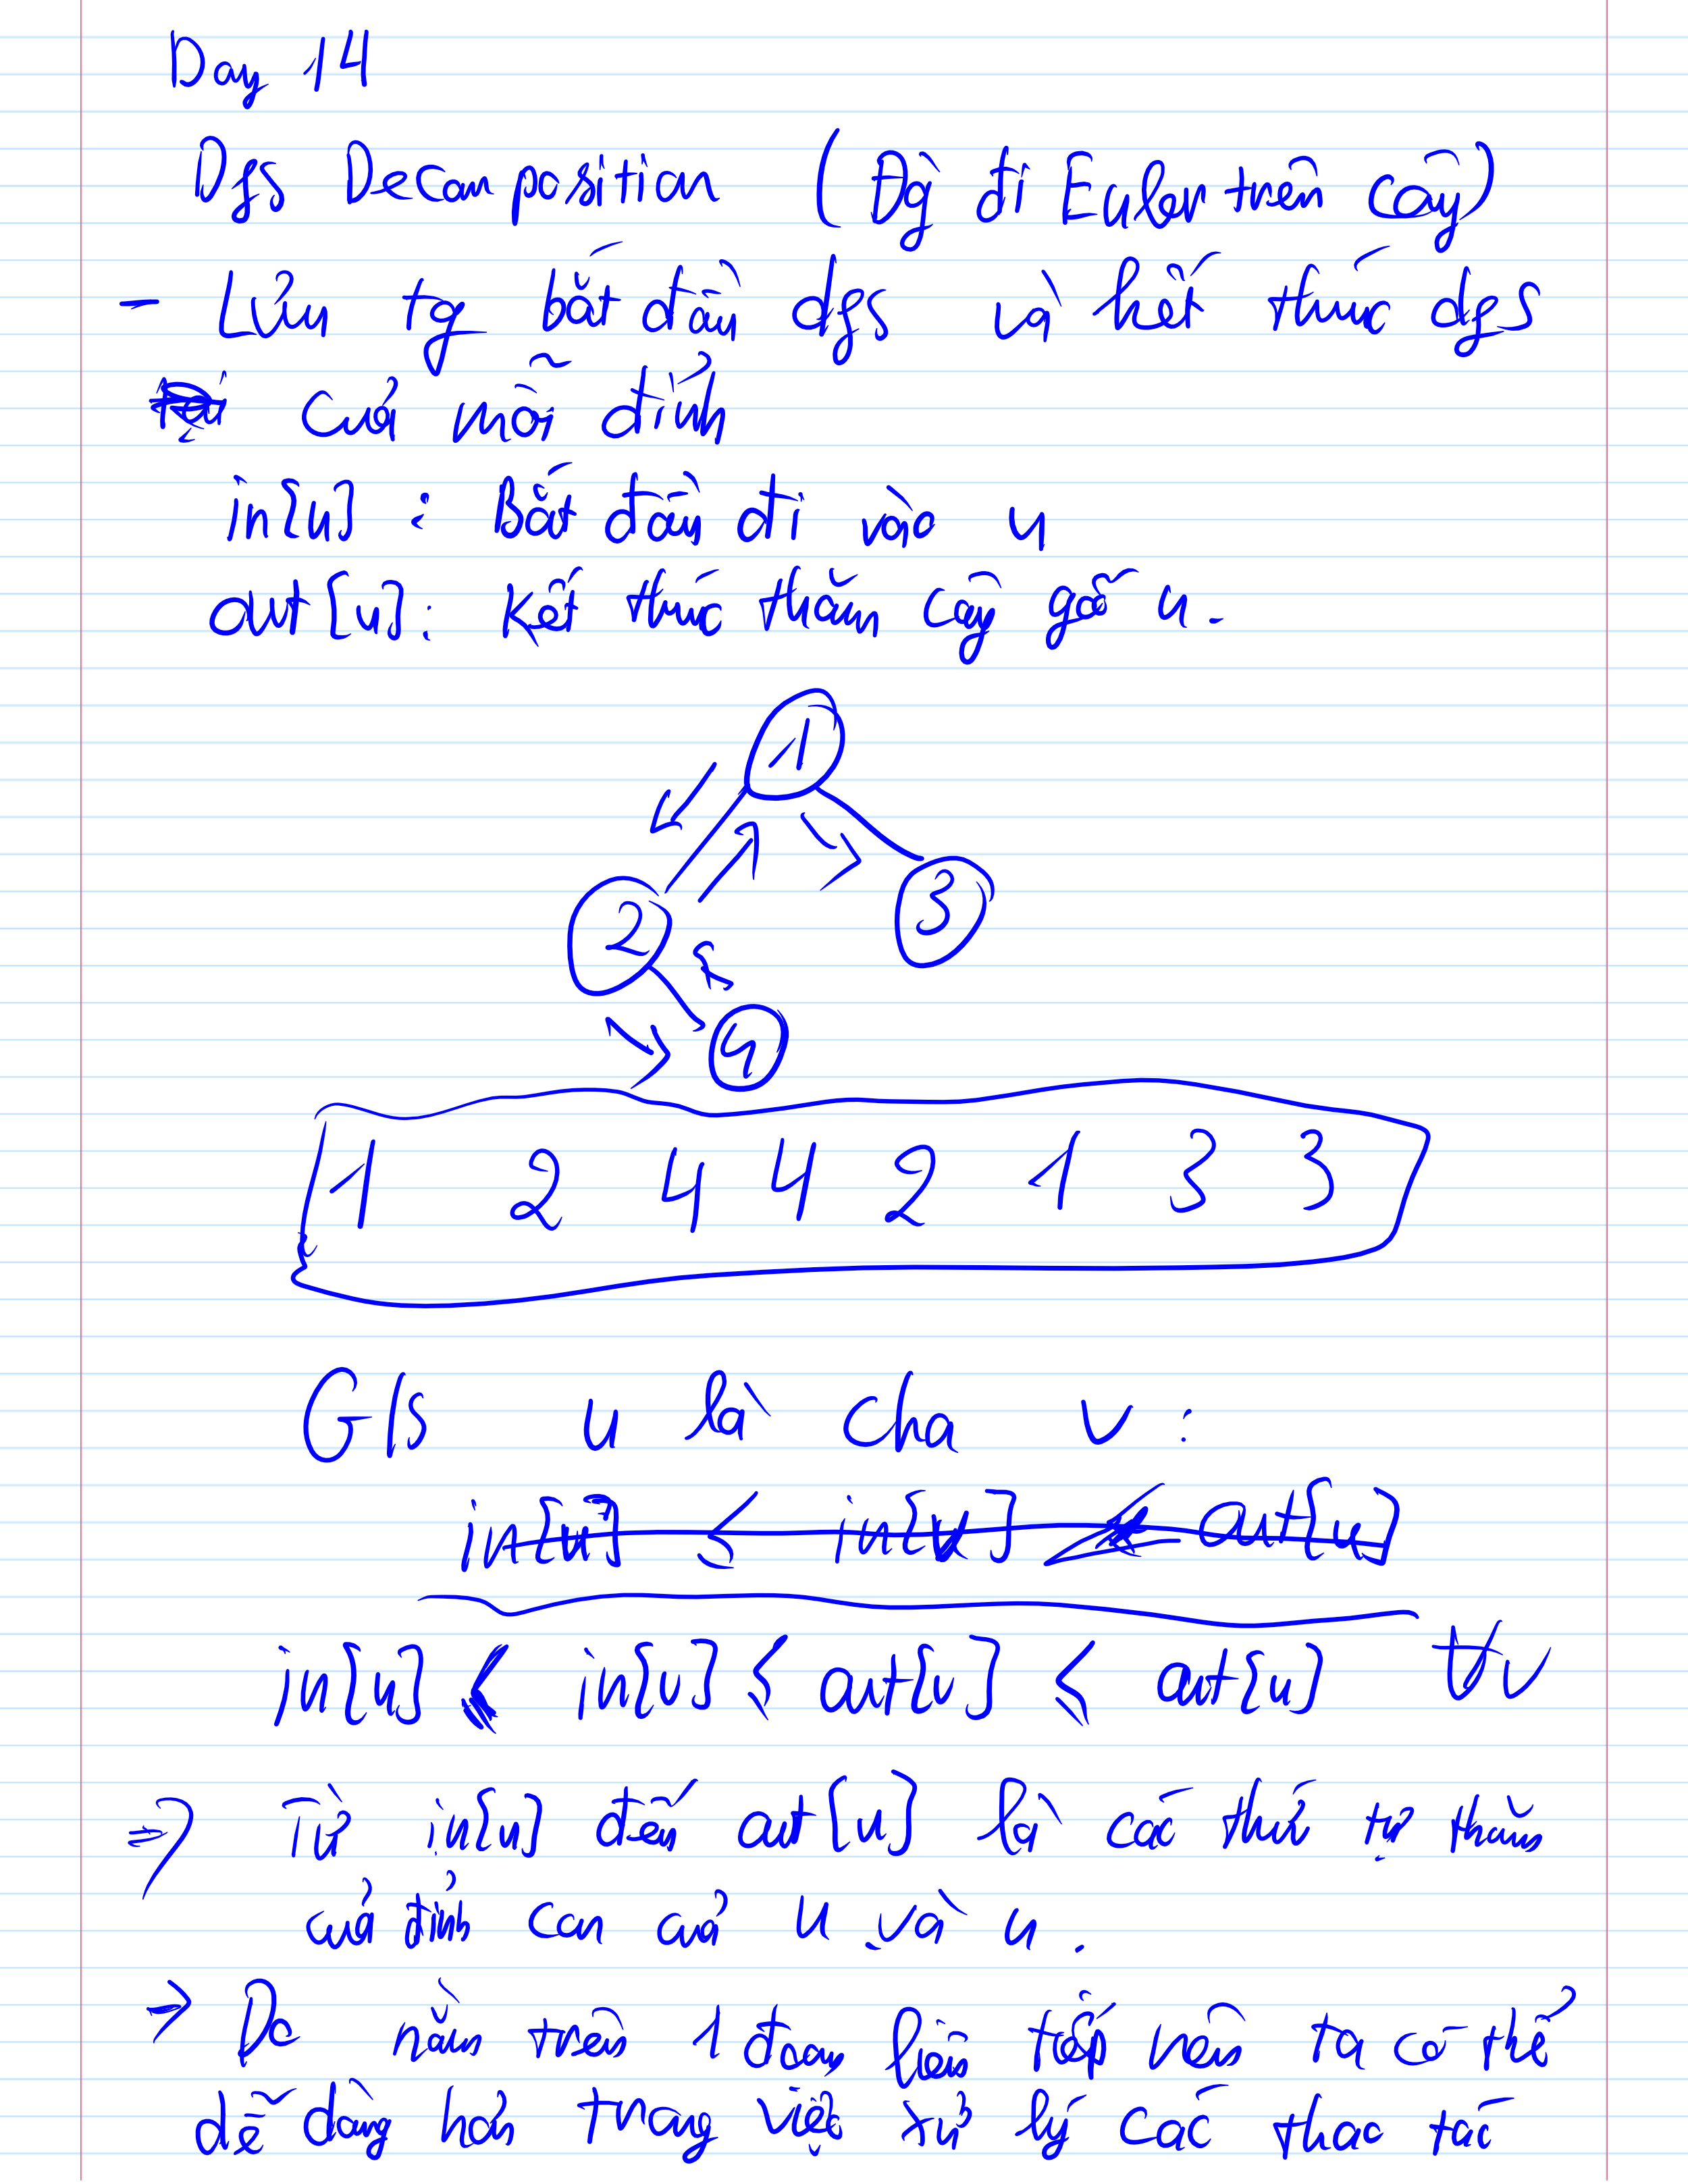 Day 14
Dfs Decomposition (Đg đi Euler trên cây)
- Lưu tg bắt đầu dfs và kết thúc dfs
của mỗi đỉnh
in[u] : Bắt đầu đi vào u
out[u] : Kết thúc thăm cây gốc u.
1
2
3
4
1 2 4 4 2 1 3 3
G/s u là cha v :
in[u] ≤ in[v] out[u]
in[u] < in[v] < out[v] < out[u] ∀v
=> Từ in[u] đến out[u] là các thứ tự thăm
của đỉnh con của u và u.
→ Do nằm trên 1 đoạn liên tiếp nên ta có thể
dễ dàng hơn trong việc xử lý các thao tác